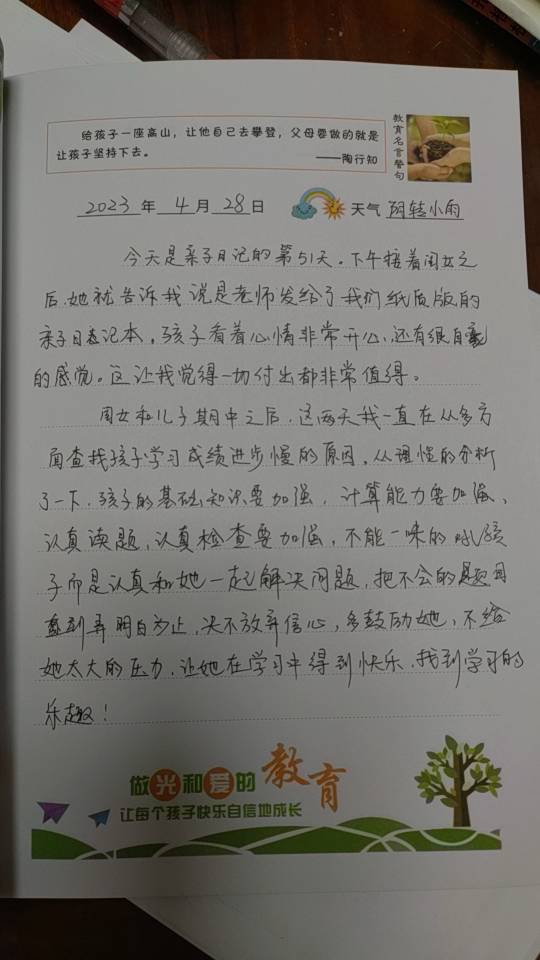 给孩子一座高山，让他自己去攀登，父母要做的就是
让孩子坚持下去。
——陶行知
教育名言警句
2023 年 4 月 28 日 天气 阴转小雨
今天是亲子日记的第51天。下午接着闺女之
后，她就告诉我说是老师发给了我们纸质版的
亲子日记本，孩子看着心情非常开心，还有很自豪
的感觉。这让我觉得一切付出都非常值得。
闺女和儿子期中之后，这两天我一直在从多方
面查找孩子学习成绩进步慢的原因，从理性的分析
了一下，孩子的基础知识要加强，计算能力要加强、
认真读题，认真检查要加强，不能一味的吼孩
子而是认真和她一起解决问题，把不会的题目
直到弄明白为止，决不放弃信心，多鼓励她，不给
她太大的压力，让她在学习中得到快乐，找到学习的
乐趣！
做光和爱的教育
让每个孩子快乐自信地成长